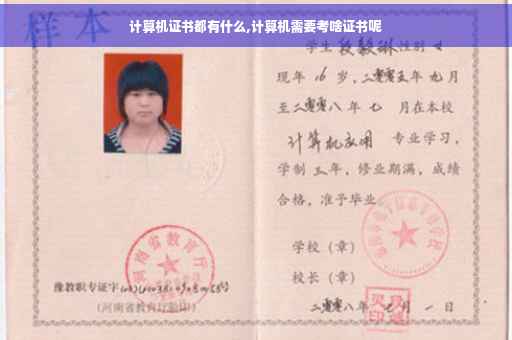 计算机证书都有什么,计算机需要考啥证书呢
样本
学生段毅琳性别女
现年16岁,二零零五年九月
至二零零八年七月在本校
计算机应用 专业学习,
学制三年,修业期满,成绩
合格,准予毕业。
学校（章）
校长（章）
二零零八年七月一日
河南省教育厅
豫教职专证字
(河南省教育厅验印)